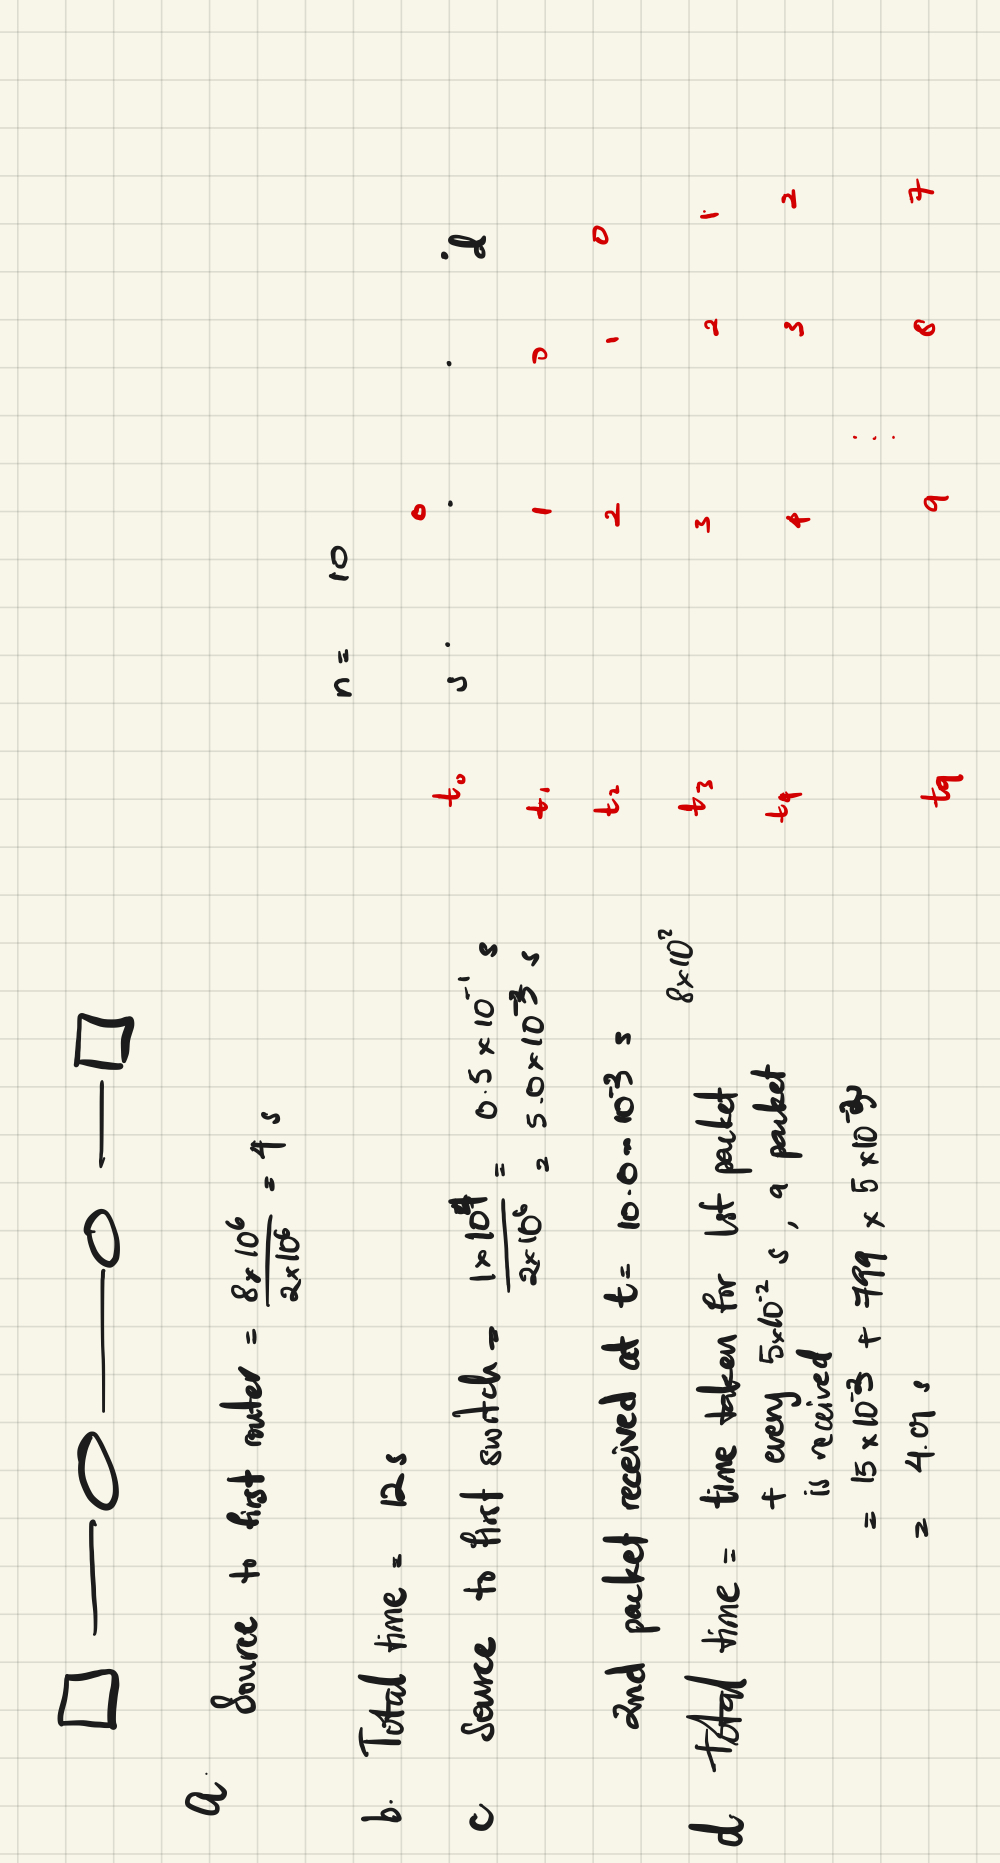 a.
Source to first router = 8×10⁶ / 2×10⁶ = 4 s
b. Total time = 12 s
c Source to first switch = 1×10⁴ / 2×10⁶ = 0.5×10⁻¹ s
= 5.0×10⁻³ s
2nd packet received at t = 10.0 × 10⁻³ s
8×10²
d Total time = time taken for 1st packet
+ every 5×10⁻² s, a packet
is received
= 15×10⁻³ + 799 × 5×10⁻³
= 4.01 s
n = 10
0
t₀ s · · · · d
t₁ 1 0
t₂ 2 1 0
t₃ 3 2 1
t₄ 4 3 2
⋮
t₉ 9 8 7